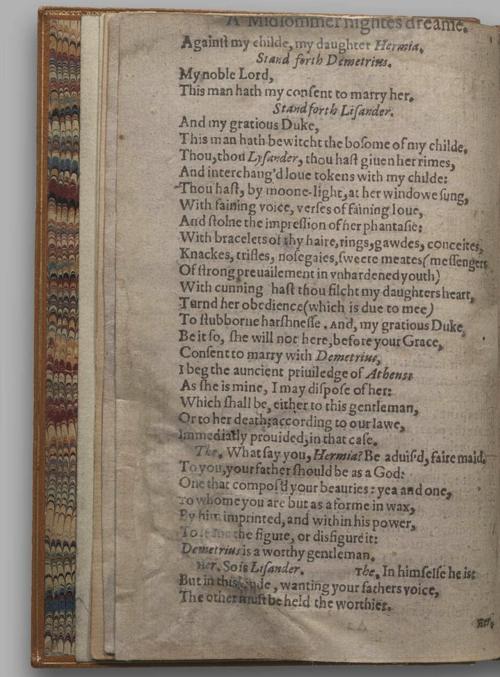 A Midsommer nightes dreame.
Against my childe, my daughter Hermia.
Stand forth Demetrius.
My noble Lord,
This man hath my consent to marry her.
Stand forth Lisander.
And my gratious Duke,
This man hath bewitcht the bosome of my childe.
Thou, thou Lysander, thou hast giuen her rimes,
And interchang'd loue tokens with my childe:
Thou hast, by moone-light, at her windowe sung,
With faining voice, verses of faining loue,
And stolne the impression of her phantasie:
With bracelets of thy haire, rings, gawdes, conceites,
Knackes, trifles, nosegaies, sweete meates (messengers
Of strong preuailement in vnhardened youth)
With cunning hast thou filcht my daughters heart,
Turnd her obedience (which is due to mee)
To stubborne harshnesse. And, my gratious Duke,
Be it so, she will not here, before your Grace,
Consent to marry with Demetrius,
I beg the auncient priuiledge of Athens:
As she is mine, I may dispose of her:
Which shall be, either to this gentleman,
Or to her death; according to our lawe,
Immediatly prouided, in that case.
The. What say you, Hermia? Be aduis'd, faire maid.
To you, your father should be as a God:
One that compos'd your beauties: yea and one,
To whome you are but as a forme in wax,
By him imprinted, and within his power,
To the figure, or disfigure it:
Demetrius is a worthy gentleman.
Her. So is Lisander. The. In himselfe he is:
But in this kinde, wanting your fathers voice,
The other must be held the worthier.
Her.